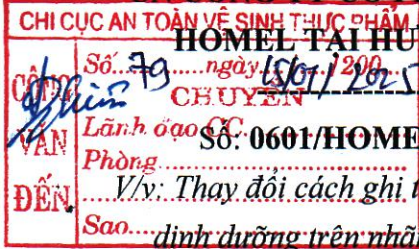 CHI CỤC AN TOÀN VỆ SINH THỰC PHẨM
HOMEL TẠI HƯ
CÔNG VĂN ĐẾN
Số 79 ngày 15/01/2025
CHUYỂN
Lãnh đạo CC
Số: 0601/HOME
Phòng
V/v: Thay đổi cách ghi t
Sao
dinh dưỡng trên nhã